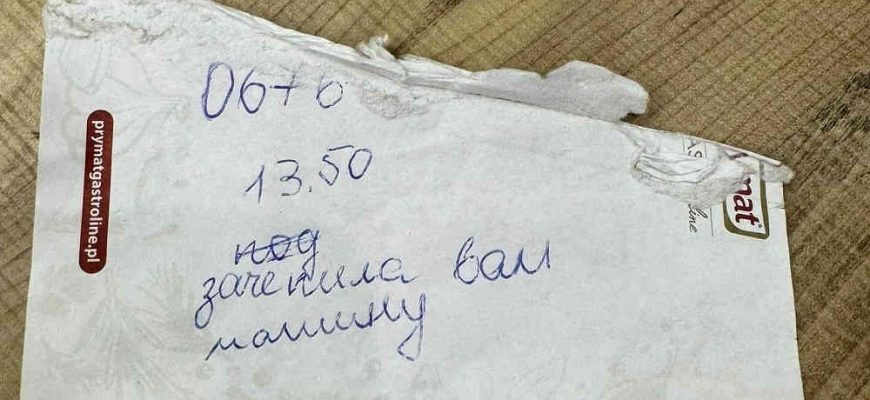 067 6
13.50
под
зачепила вам
машину
prymatgastroline.pl
mat
line